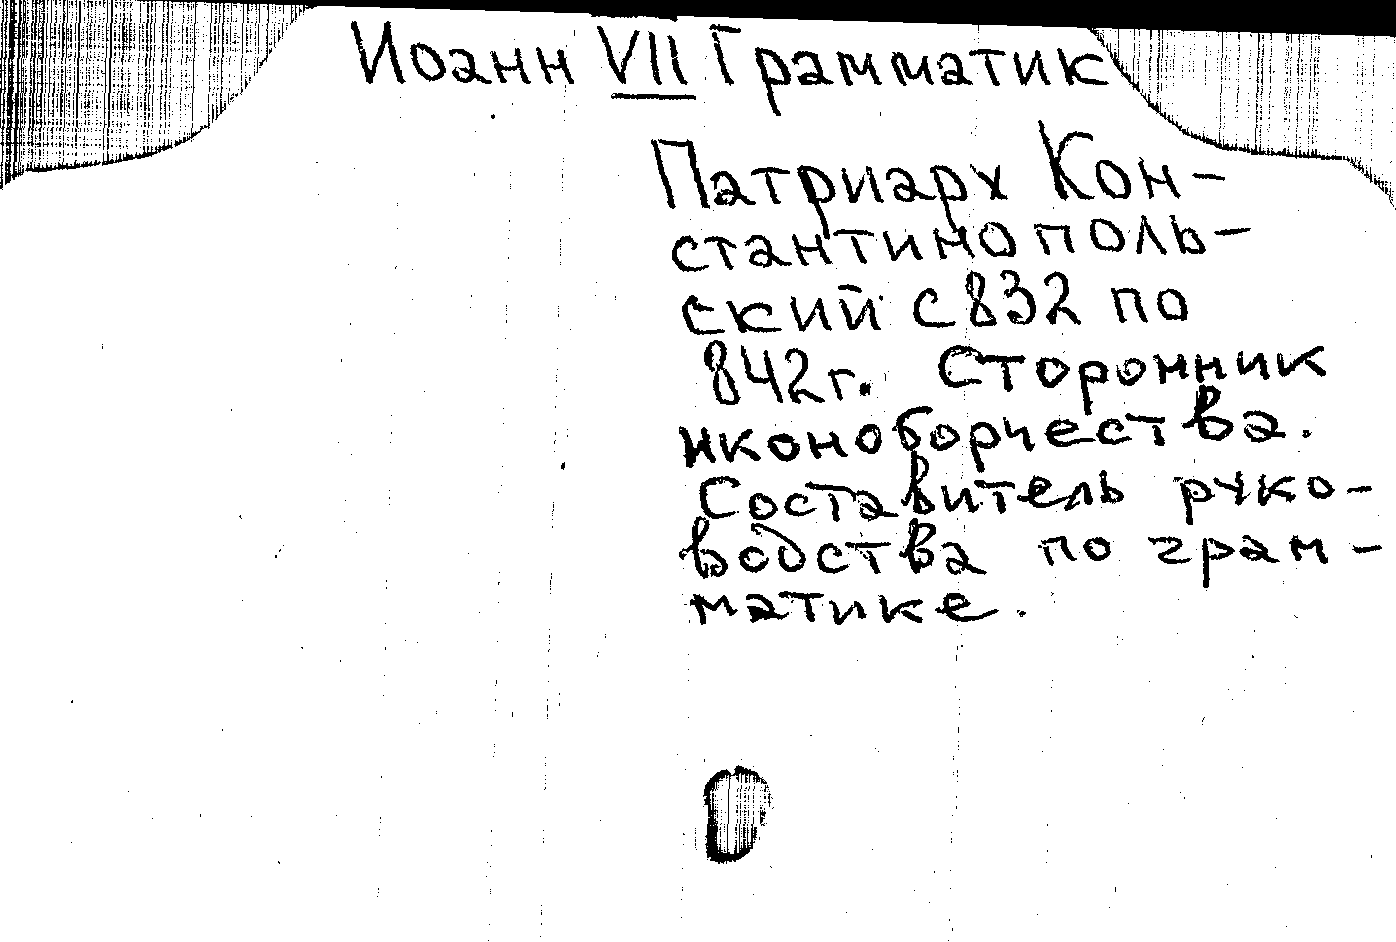 Иоанн VII Грамматик
Патриарх Кон-
стантинополь-
ский с 832 по
842г. Сторонник
иконоборчества.
Составитель руко-
водства по грам-
матике.